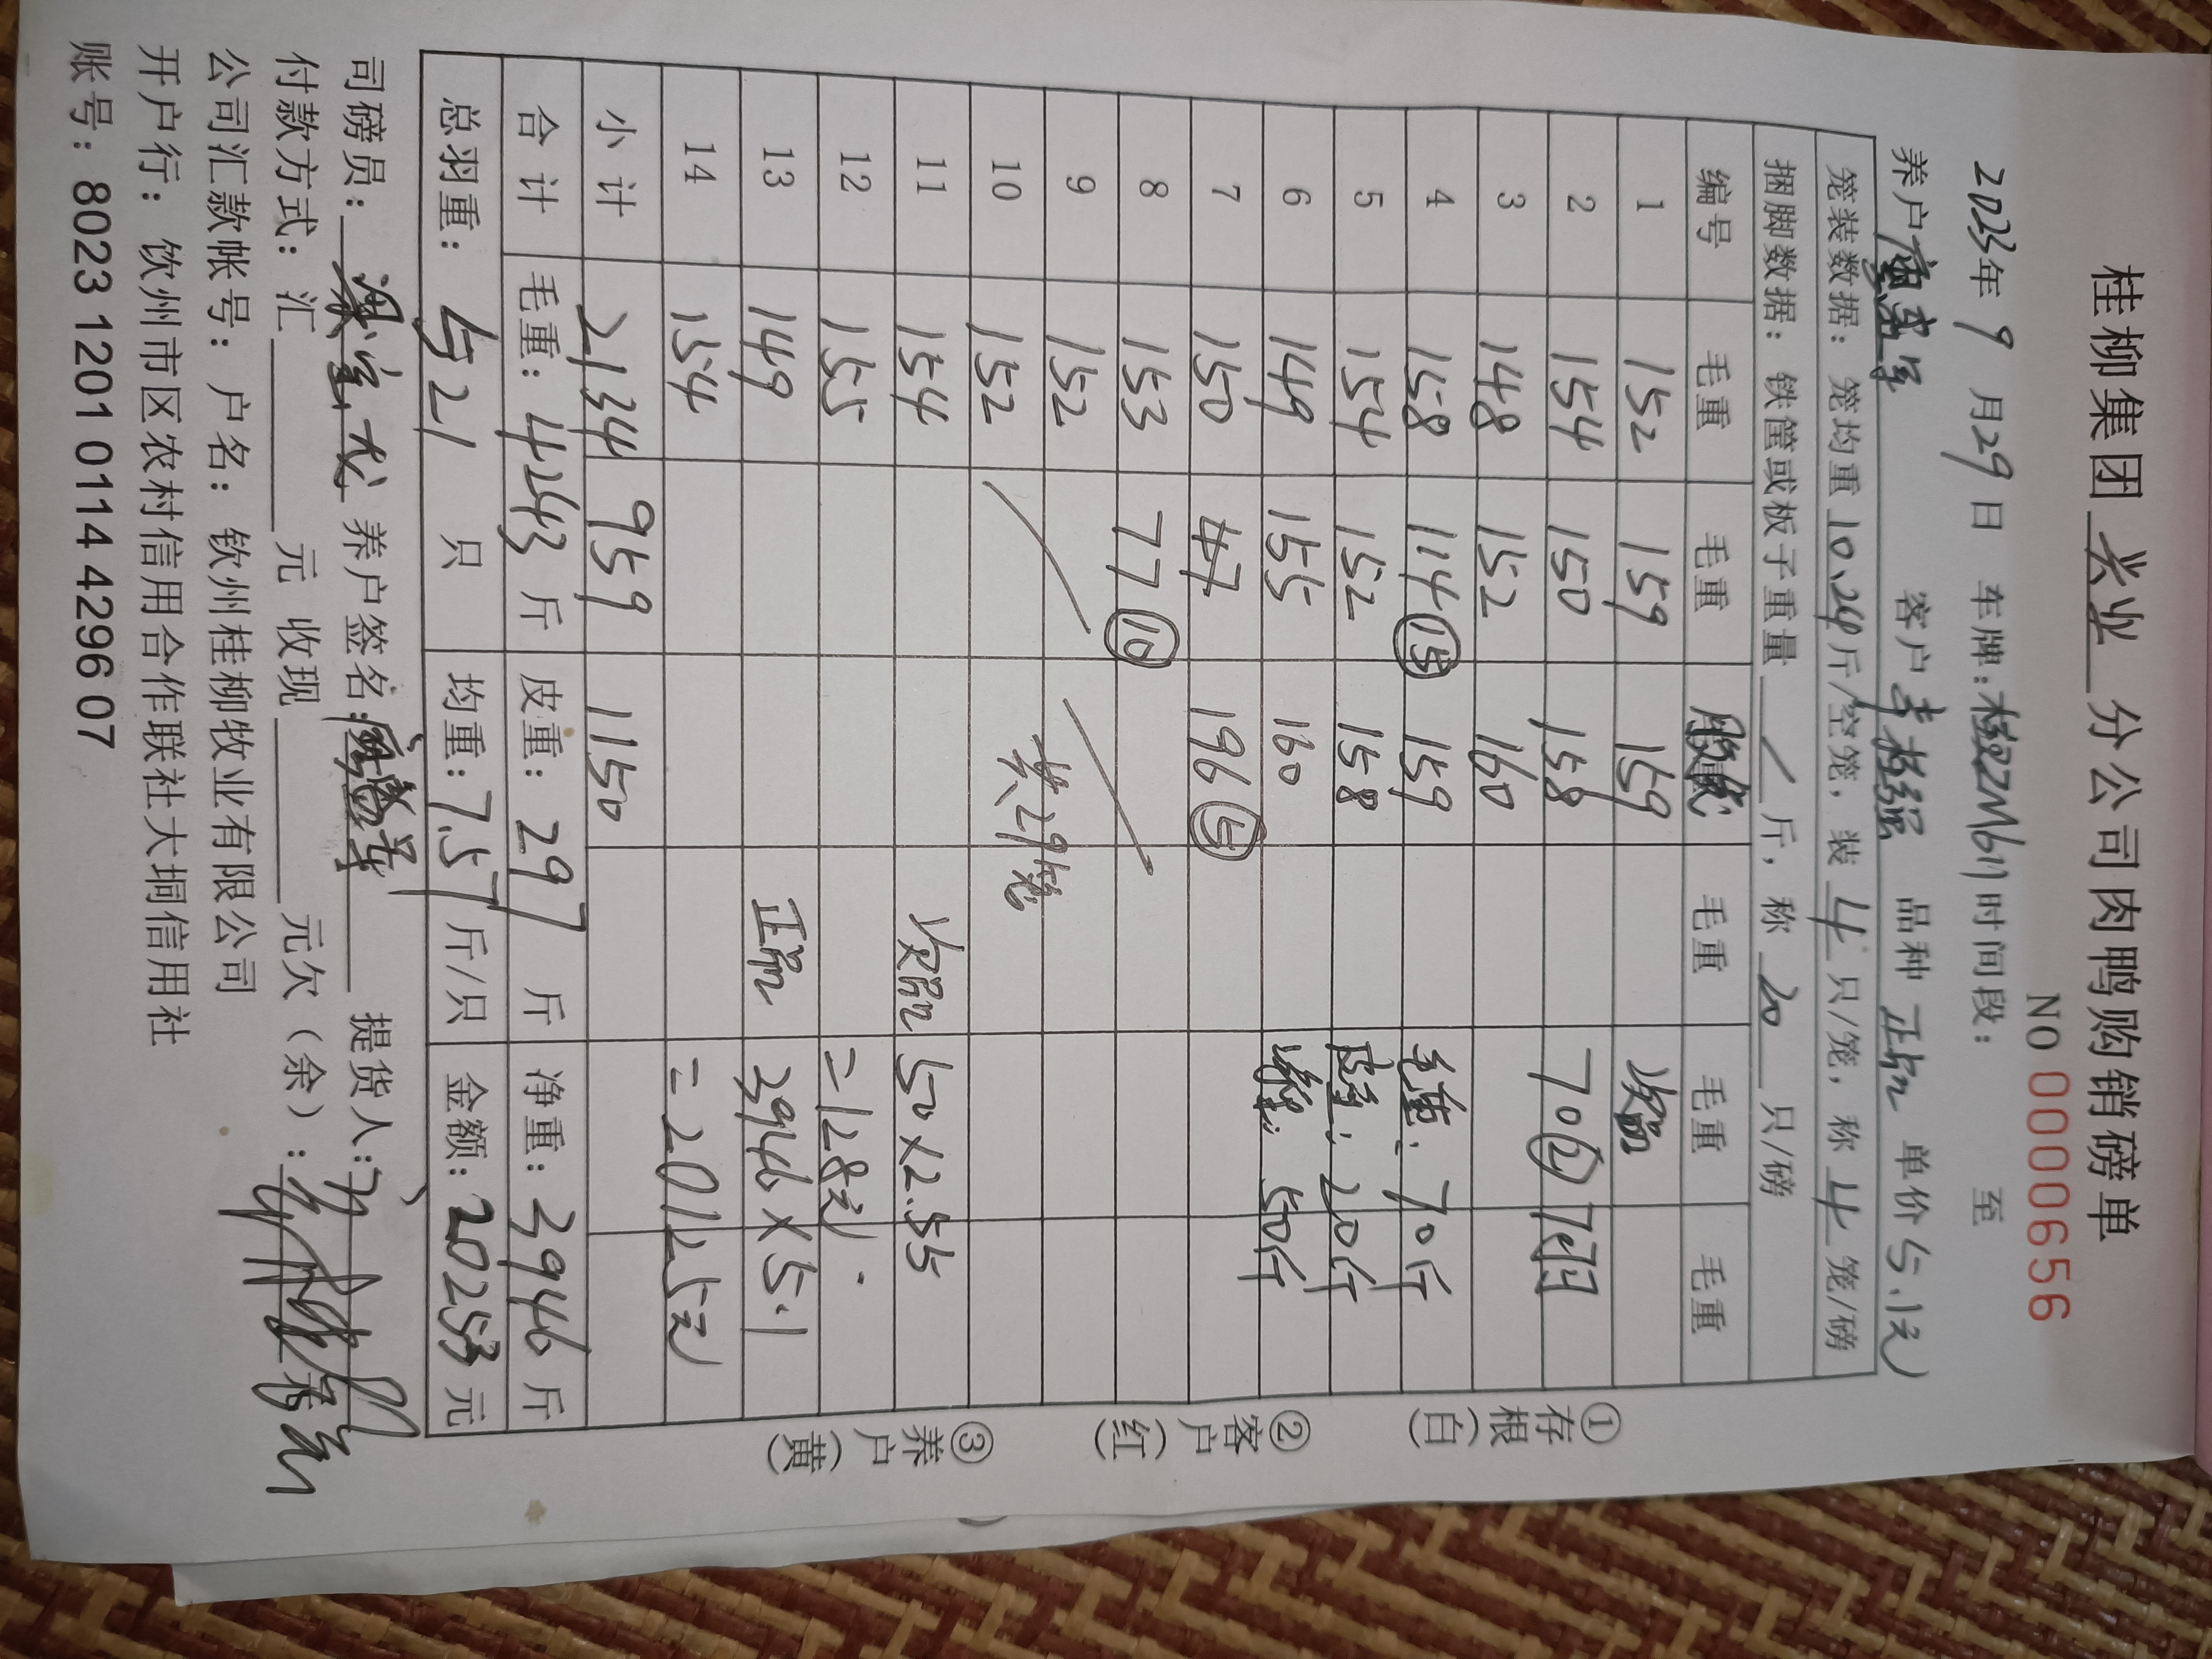 桂柳集团 兴业 分公司肉鸭购销磅单
NO 0000656
2023年 9 月29 日 车牌: 时间段： 至
养户 客户 李 强 品种 正品 单价 5.1元
笼装数据：笼均重 10.24 斤/空笼，装 4 只/笼，称 4 笼/磅
捆脚数据：铁筐或板子重量 / 斤，称 20 只/磅
编号 毛重 毛重 毛重 毛重 毛重
1 152 159 159 次品
2 154 150 158 70② 7只
3 148 152 160
4 158 114⑮ 159 毛重：70斤
5 154 152 158 皮重：20斤
6 149 155 160 净重：50斤
7 150 47 196
8 153 77⑩
9 152
10 152 共29笼
11 154 次品 50×2.55
12 155 =128元
13 149 正品 3946×5.1
14 154 =20125元
小计 2134 959 1150
合计 毛重：4243 斤 皮重：297 斤 净重：3946 斤
总羽重： 521 只 均重：7.57 斤/只 金额：20253 元
司磅员： 养户签名： 提货人：
付款方式：汇 元 收现 元欠（余）：
公司汇款帐号：户名：钦州桂柳牧业有限公司
开户行：钦州市区农村信用合作联社大垌信用社
账号：8023 1201 0114 4296 07
①存根（白）
②客户（红）
③养户（黄）